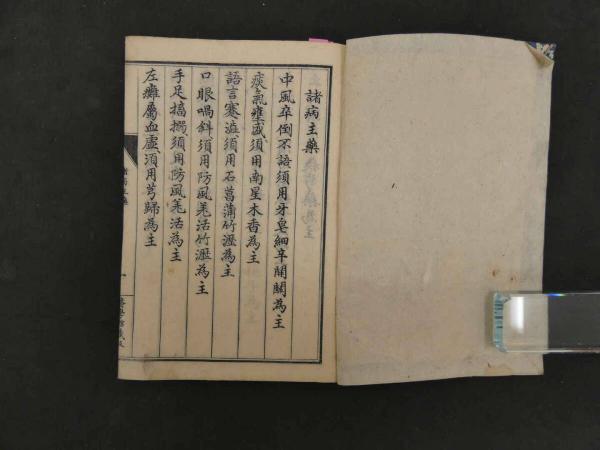 諸病主藥
中風卒倒不語須用牙皂細辛開關為主
痰氣壅盛須用南星木香為主
語言蹇澁須用石菖蒲竹瀝為主
口眼喎斜須用防風羗活竹瀝為主
手足搐搦須用防風羗活為主
左癱屬血虛須用芎歸為主
諸病主藥
一